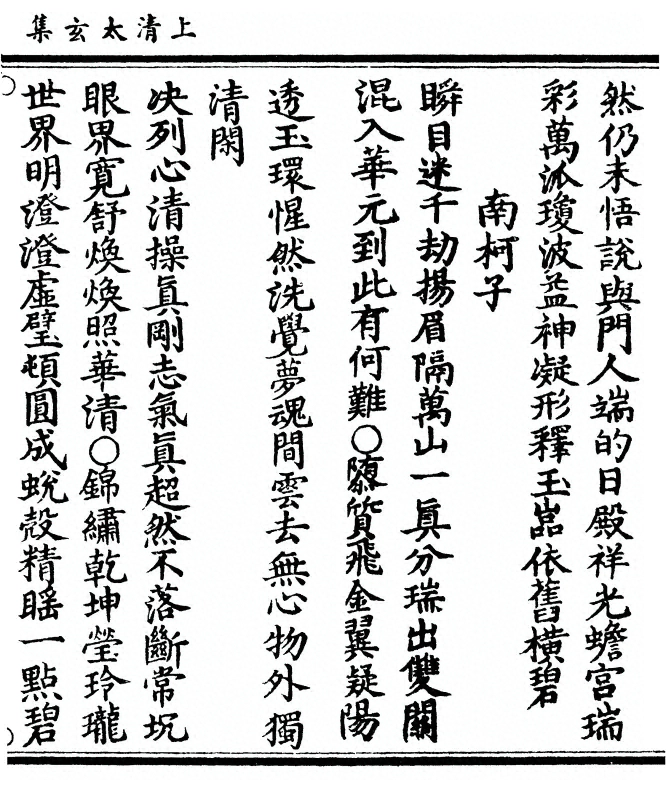 上清太玄集
然仍未悟說與門人端的日殿祥光蟾宮瑞
彩萬派瓊波益神凝形釋玉嵓依舊橫碧
南柯子
瞬目迷千劫揚眉隔萬山一眞分瑞出雙關
混入華元到此有何難〇隳質飛金翼疑陽
透玉環惺然洗覺夢魂間雲去無心物外獨
清閑
決列心清操眞剛志氣眞超然不落斷常坑
眼界寛舒煥煥照華清〇錦繡乾坤瑩玲瓏
世界明澄澄虛璧頓圓成蛻殼精瑤一點碧